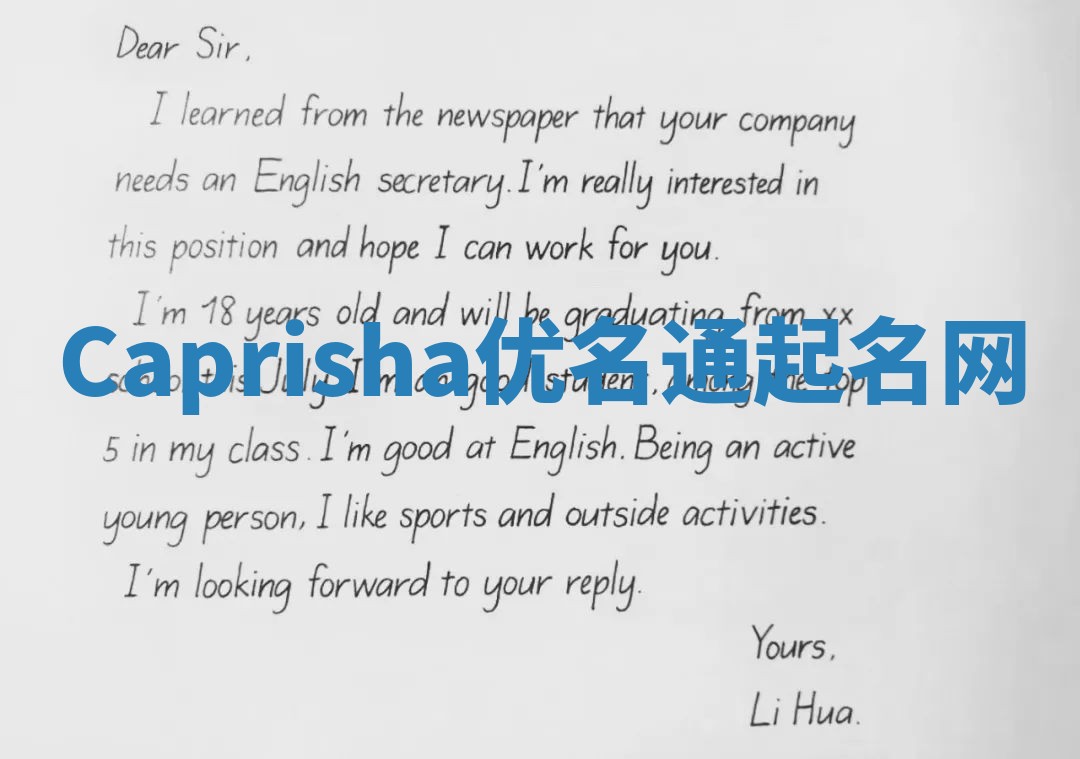 Dear Sir,
I learned from the newspaper that your company
needs an English secretary. I'm really interested in
this position and hope I can work for you.
I'm 18 years old and will be graduating from xx
Caprisha优名通起名网
July. I'm good student, among the top
5 in my class. I'm good at English. Being an active
young person, I like sports and outside activities.
I'm looking forward to your reply.
Yours,
Li Hua.